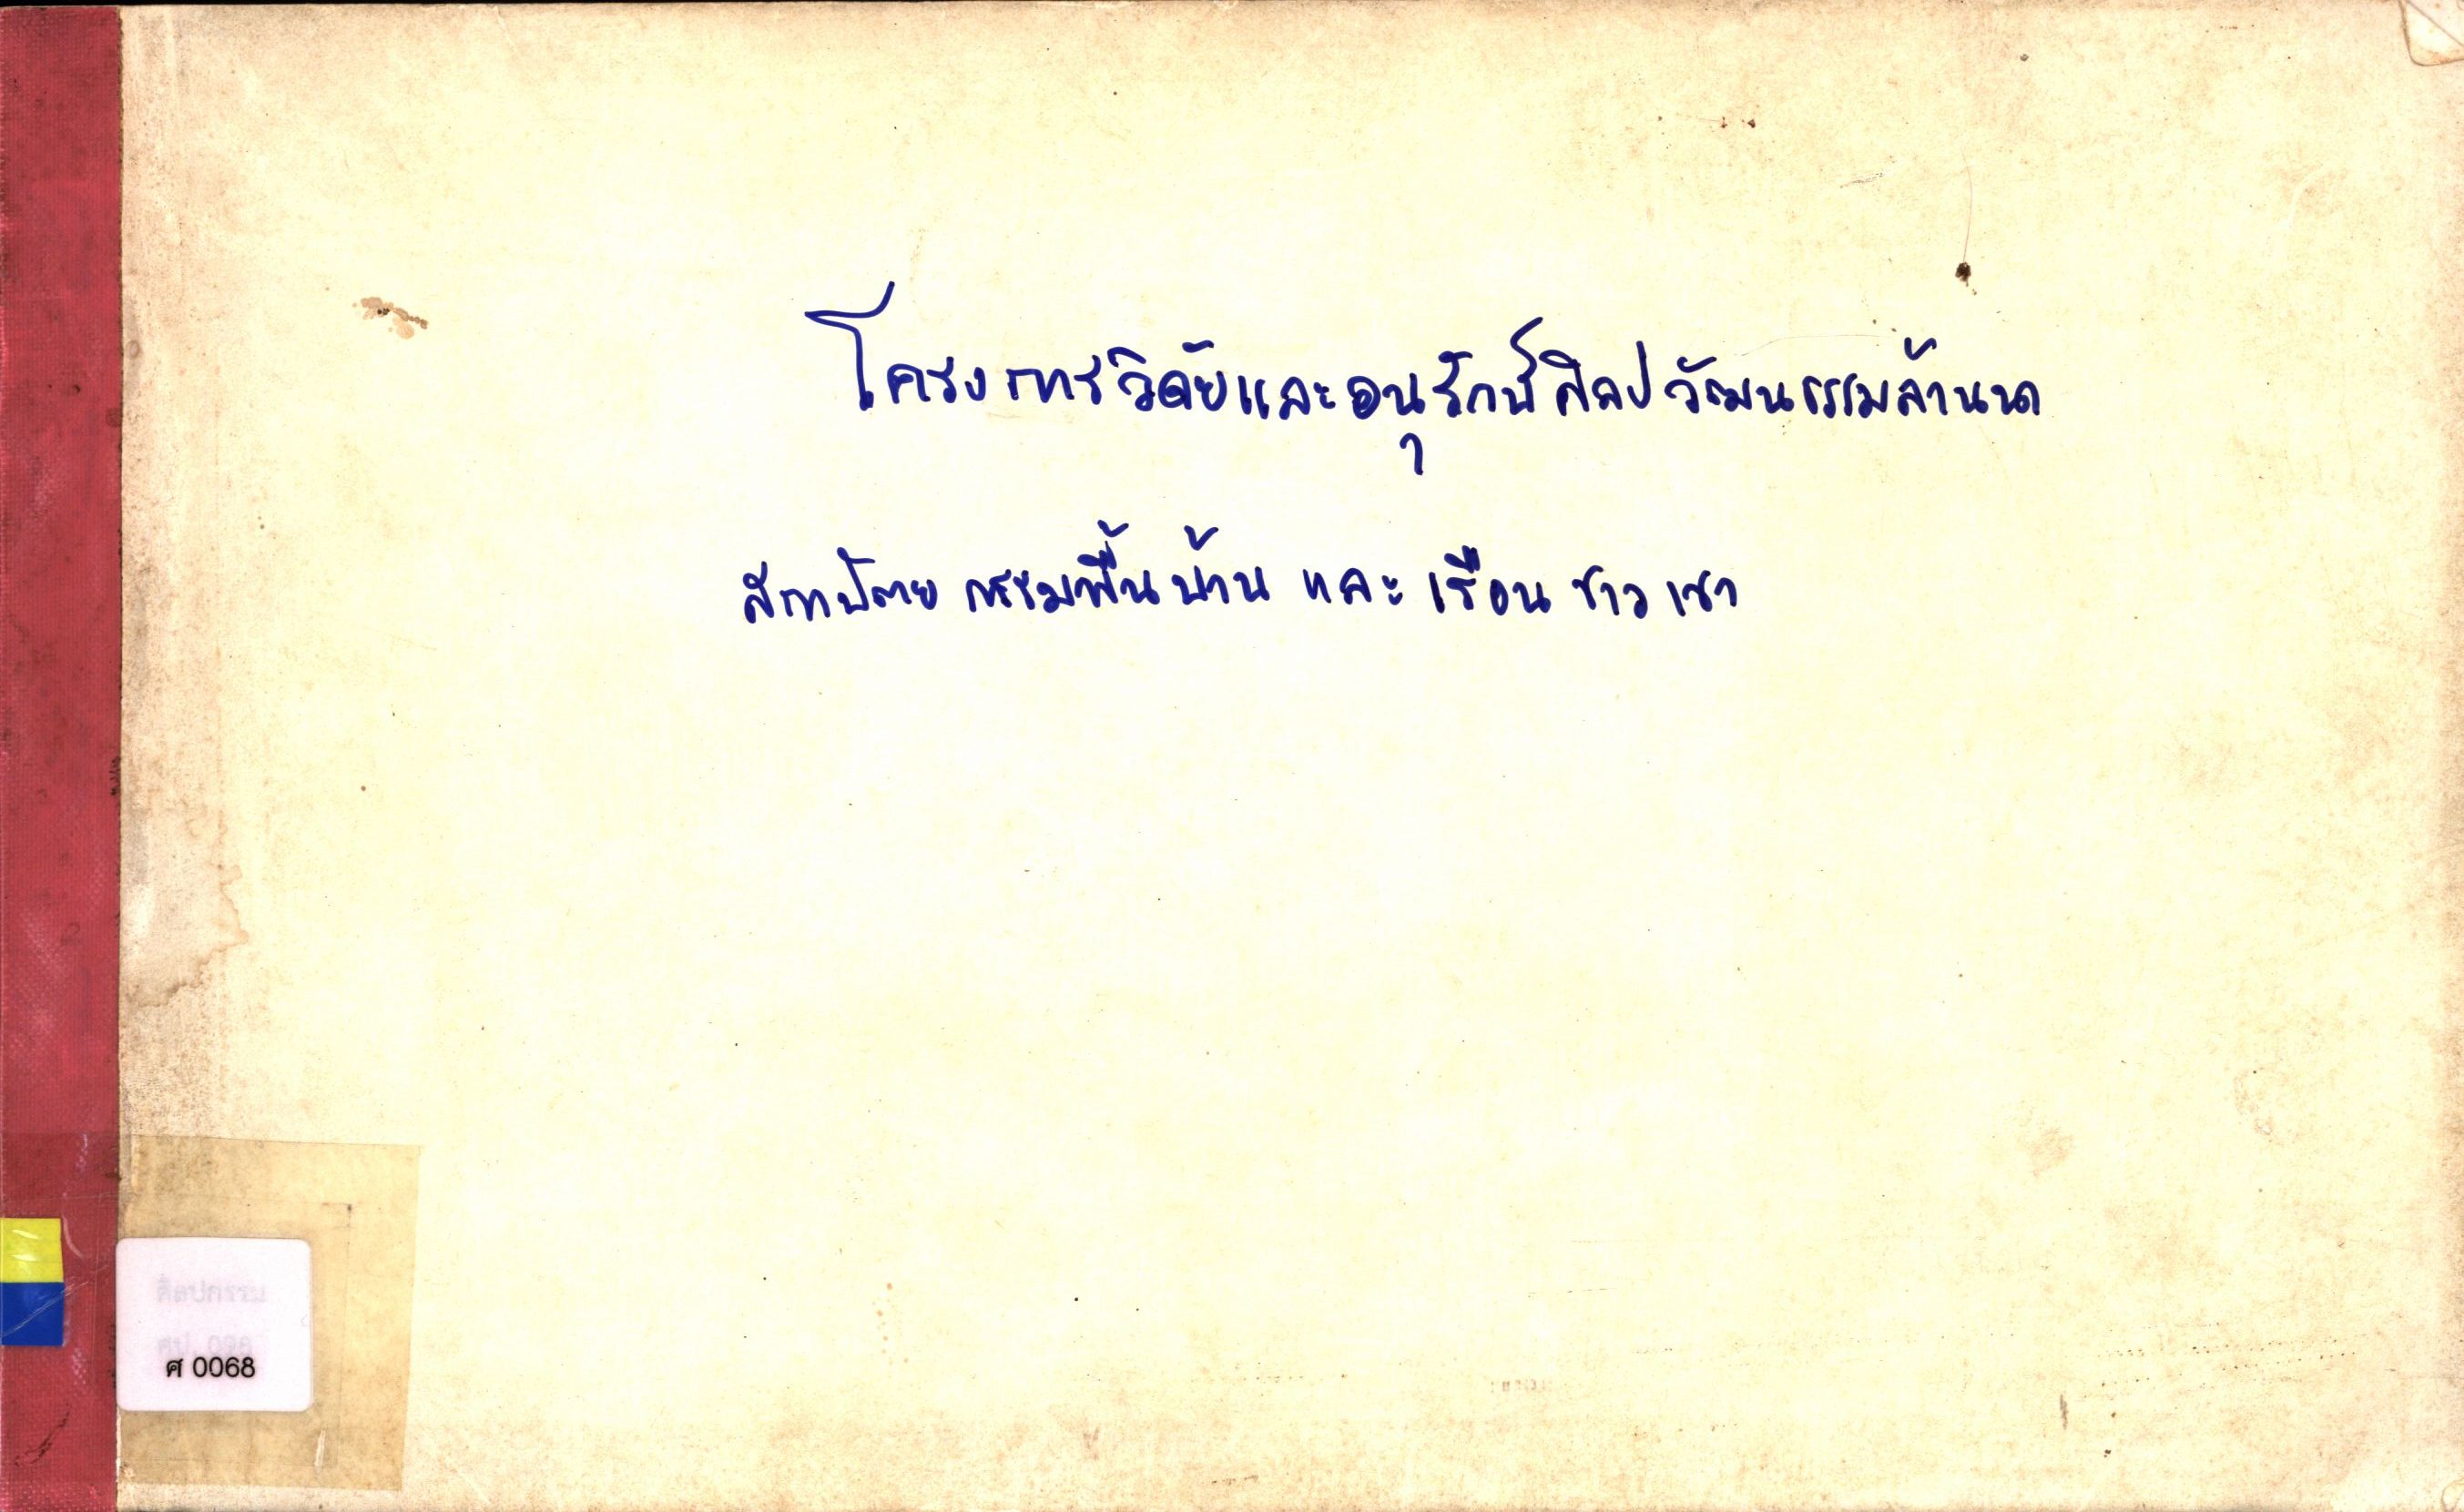 โครงการวิจัยและอนุรักษ์ศิลปวัฒนธรรมล้านนา
สถาปัตยกรรมพื้นบ้าน และ เรือนชาวเขา
ศิลปกรรม
ศ 0068